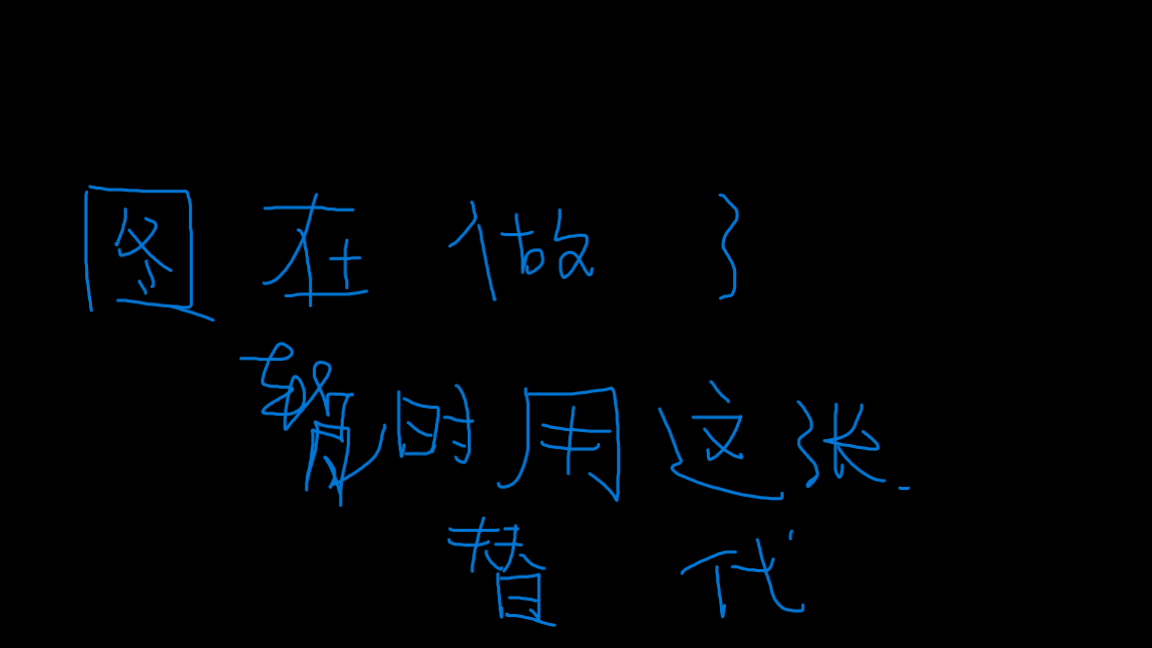 图在做了
暂时用这张
替代